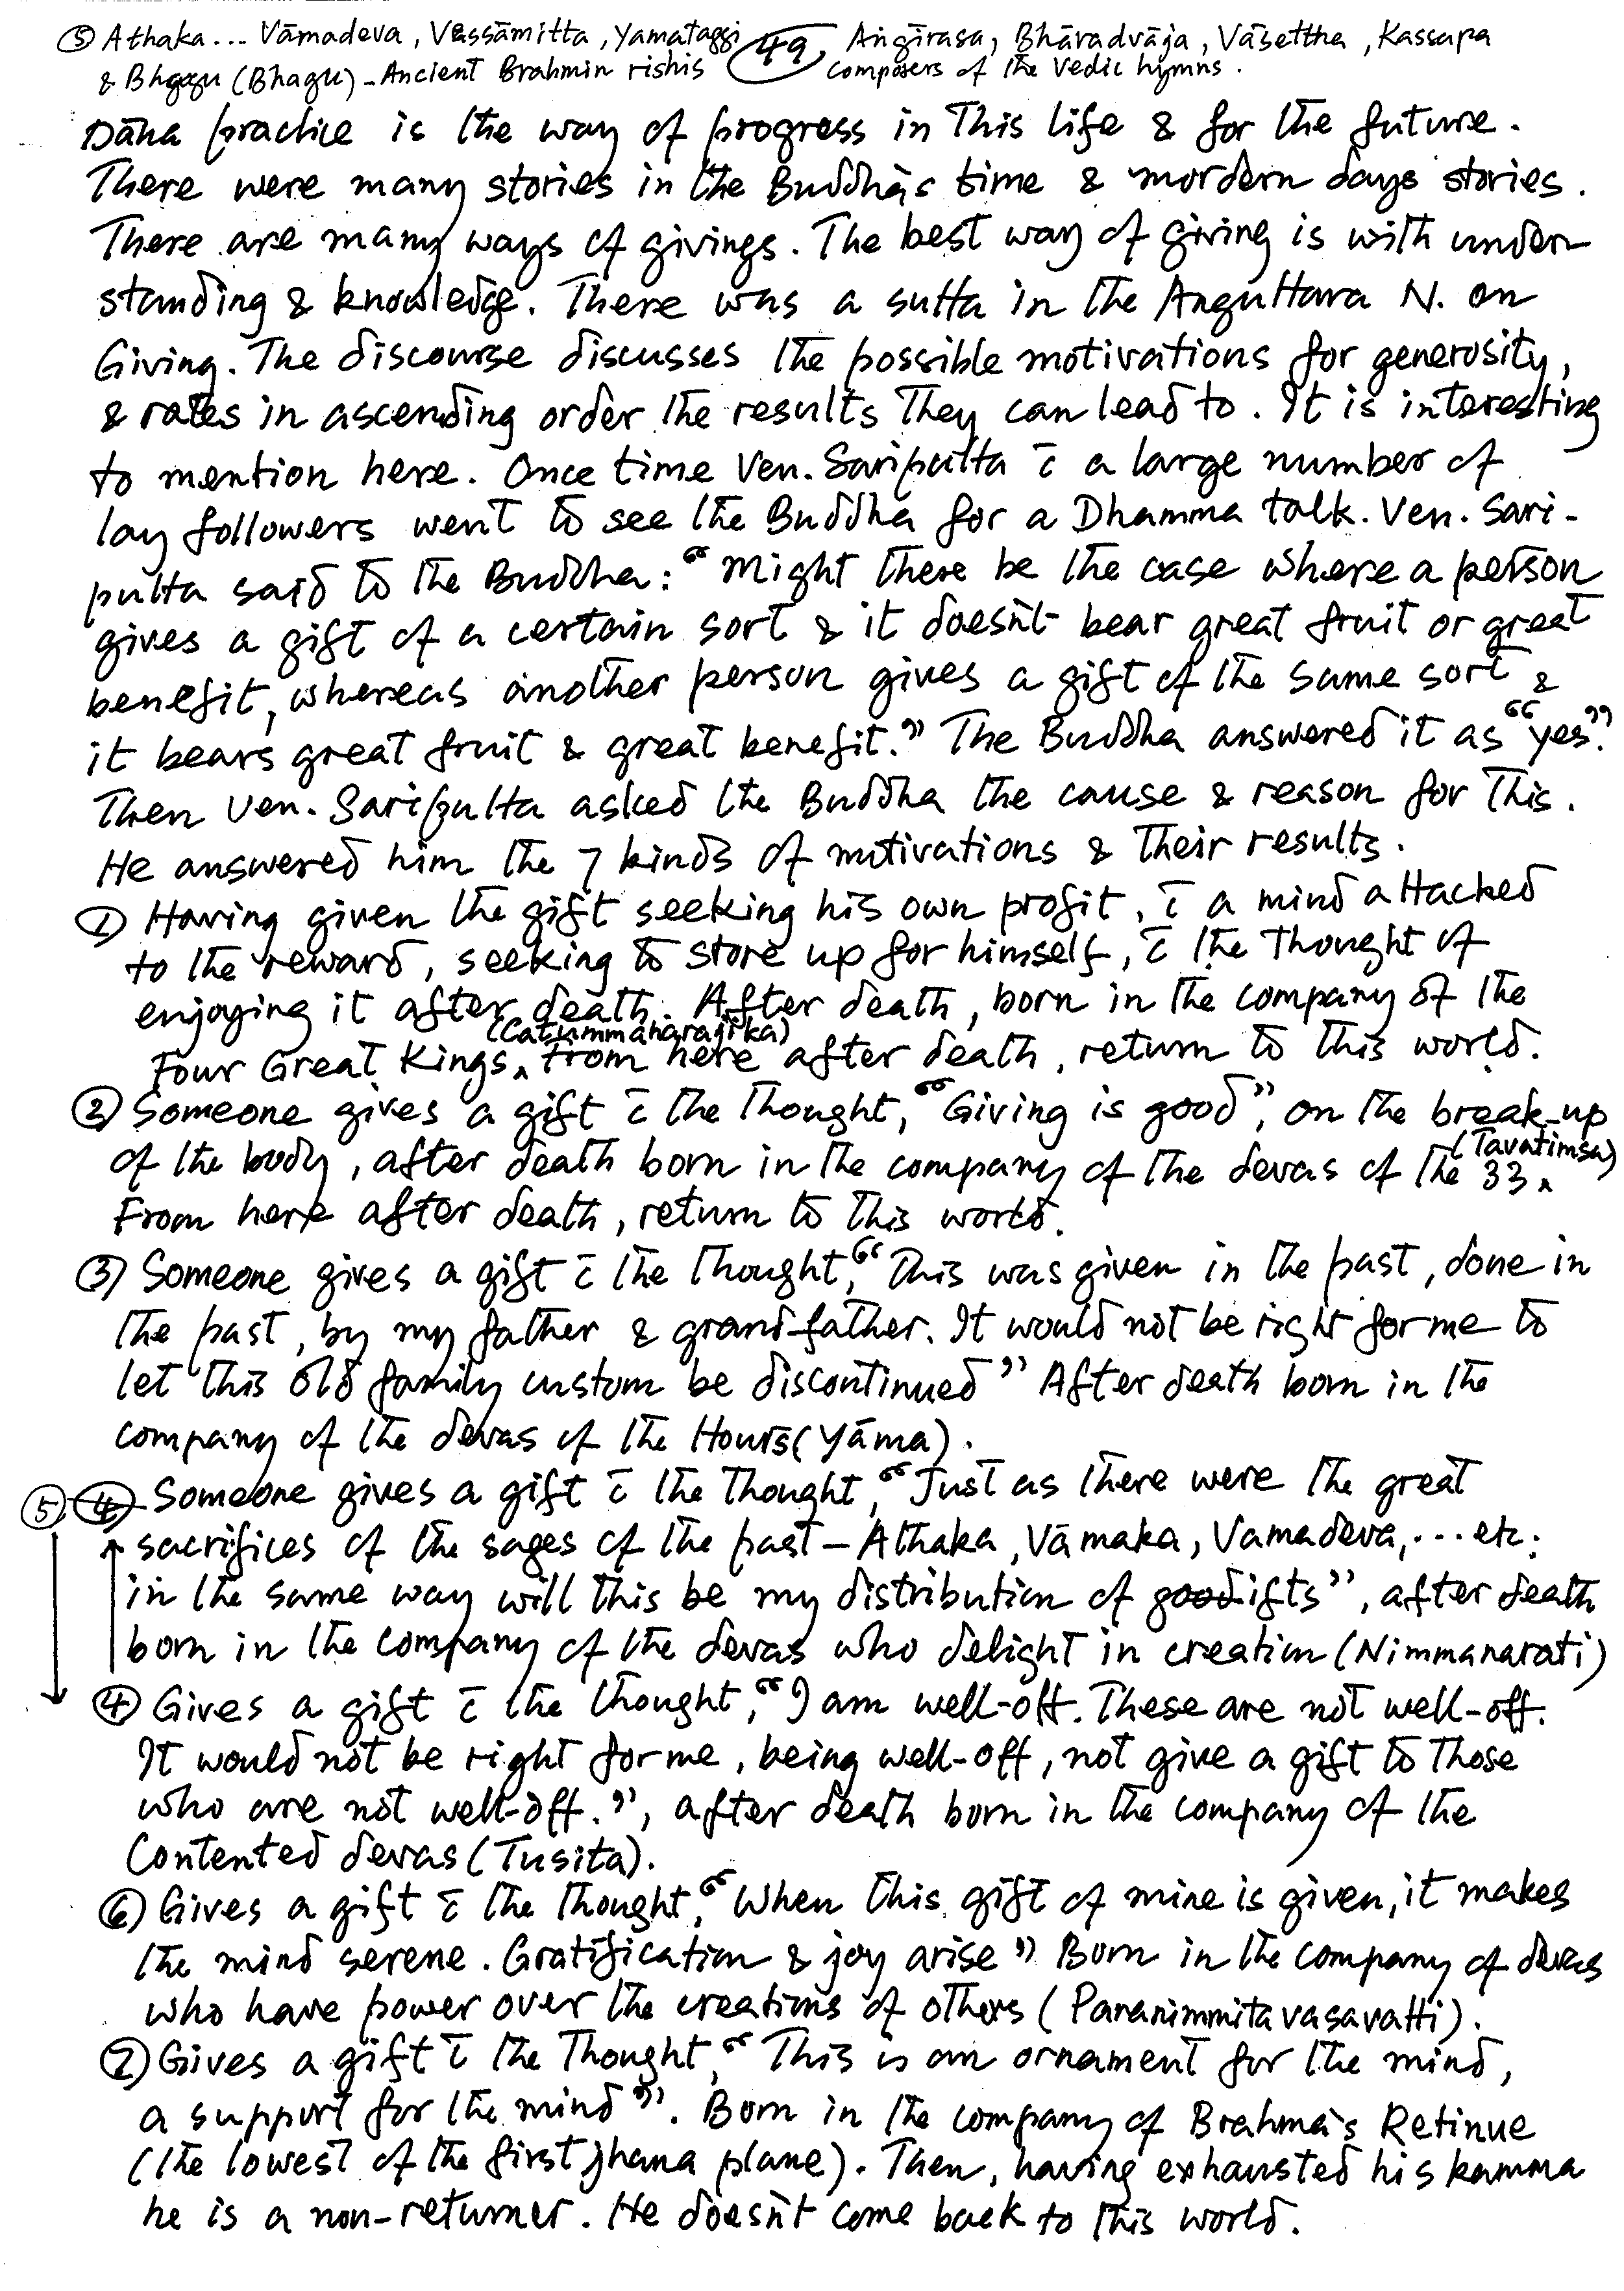 ⑤ Athaka... Vāmadeva, Vessāmitta, Yamataggi, 49 Angirasa, Bhāradvāja, Vāsettha, Kassapa
& Bhagu (Bhagu) - Ancient Brahmin rishis composers of the Vedic hymns.
Dāna practice is the way of progress in this life & for the future.
There were many stories in the Buddha's time & mordern days stories.
There are many ways of givings. The best way of giving is with under-
standing & knowledge. There was a sutta in the Anguttara N. on
Giving. The discourse discusses the possible motivations for generosity,
& rates in ascending order the results they can lead to. It is interesting
to mention here. Once time Ven. Sariputta c̄ a large number of
lay followers went to see the Buddha for a Dhamma talk. Ven. Sari-
putta said to the Buddha: “Might there be the case where a person
gives a gift of a certain sort & it doesn't bear great fruit or great
benefit, whereas another person gives a gift of the same sort &
it bears great fruit & great benefit.” The Buddha answered it as “yes”.
Then Ven. Sariputta asked the Buddha the cause & reason for this.
He answered him the 7 kinds of motivations & their results.
① Having given the gift seeking his own profit, c̄ a mind attacked
to the reward, seeking to store up for himself, c̄ the thought of
enjoying it after death. After death, born in the company of the
Four Great Kings, (Catummaharajika) from here after death, return to this world.
② Someone gives a gift c̄ the thought, “Giving is good”, on the break-up
of the body, after death born in the company of the devas of the 33 (Tavatimsa)
From here after death, return to this world.
③ Someone gives a gift c̄ the thought, “This was given in the past, done in
the past, by my father & grandfather. It would not be right for me to
let this old family custom be discontinued” After death born in the
company of the devas of the Hours (Yāma).
⑤ ④ Someone gives a gift c̄ the thought, “Just as there were the great
sacrifices of the sages of the past – Athaka, Vāmaka, Vamadeva,... etc;
in the same way will this be my distribution of goodifts”, after death
born in the company of the devas who delight in creation (Nimmanarati)
④ Gives a gift c̄ the thought, “I am well-off. These are not well-off.
It would not be right for me, being well-off, not give a gift to those
who are not well-off.”, after death born in the company of the
Contented devas (Tusita).
⑥ Gives a gift c̄ the thought, “When this gift of mine is given, it makes
the mind serene. Gratification & joy arise” Born in the company of devas
who have power over the creations of others (Paranimmitavasavatti).
⑦ Gives a gift c̄ the thought, “This is an ornament for the mind,
a support for the mind”. Born in the company of Brahma's Retinue
(the lowest of the first jhana plane). Then, having exhausted his kamma
he is a non-returner. He doesn't come back to this world.